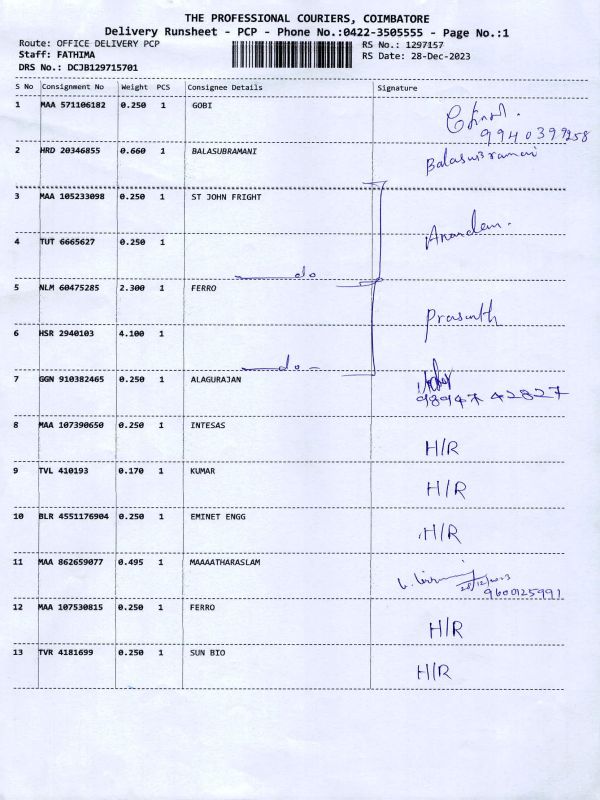 THE PROFESSIONAL COURIERS, COIMBATORE
Delivery Runsheet - PCP - Phone No.:0422-3505555 - Page No.:1
Route: OFFICE DELIVERY PCP RS No.: 1297157
Staff: FATHIMA RS Date: 28-Dec-2023
DRS No.: DCJB129715701
S No Consignment No Weight PCS Consignee Details Signature
1 MAA 571106182 0.250 1 GOBI
9940399258
2 HRD 20346855 0.660 1 BALASUBRAMANI Balasubramani
3 MAA 105233098 0.250 1 ST JOHN FRIGHT
Anandan.
4 TUT 6665627 0.250 1
do
5 NLM 60475285 2.300 1 FERRO
Prasanth
6 HSR 2940103 4.100 1
do
7 GGN 910382465 0.250 1 ALAGURAJAN
98947 42827
8 MAA 107390650 0.250 1 INTESAS
H/R
9 TVL 410193 0.170 1 KUMAR
H/R
10 BLR 4551176904 0.250 1 EMINET ENGG
H/R
11 MAA 862659077 0.495 1 MAAAATHARASLAM
28/12/2023
9600125991
12 MAA 107530815 0.250 1 FERRO
H/R
13 TVR 4181699 0.250 1 SUN BIO
H/R